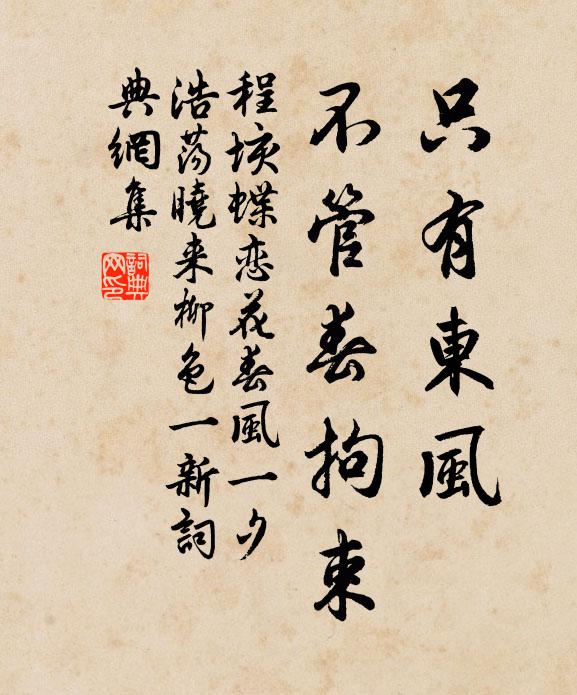 只有東風
不管春拘束
程垓蝶恋花春風一夕
浩蕩曉来柳色一新詞
典網集
詞典网印